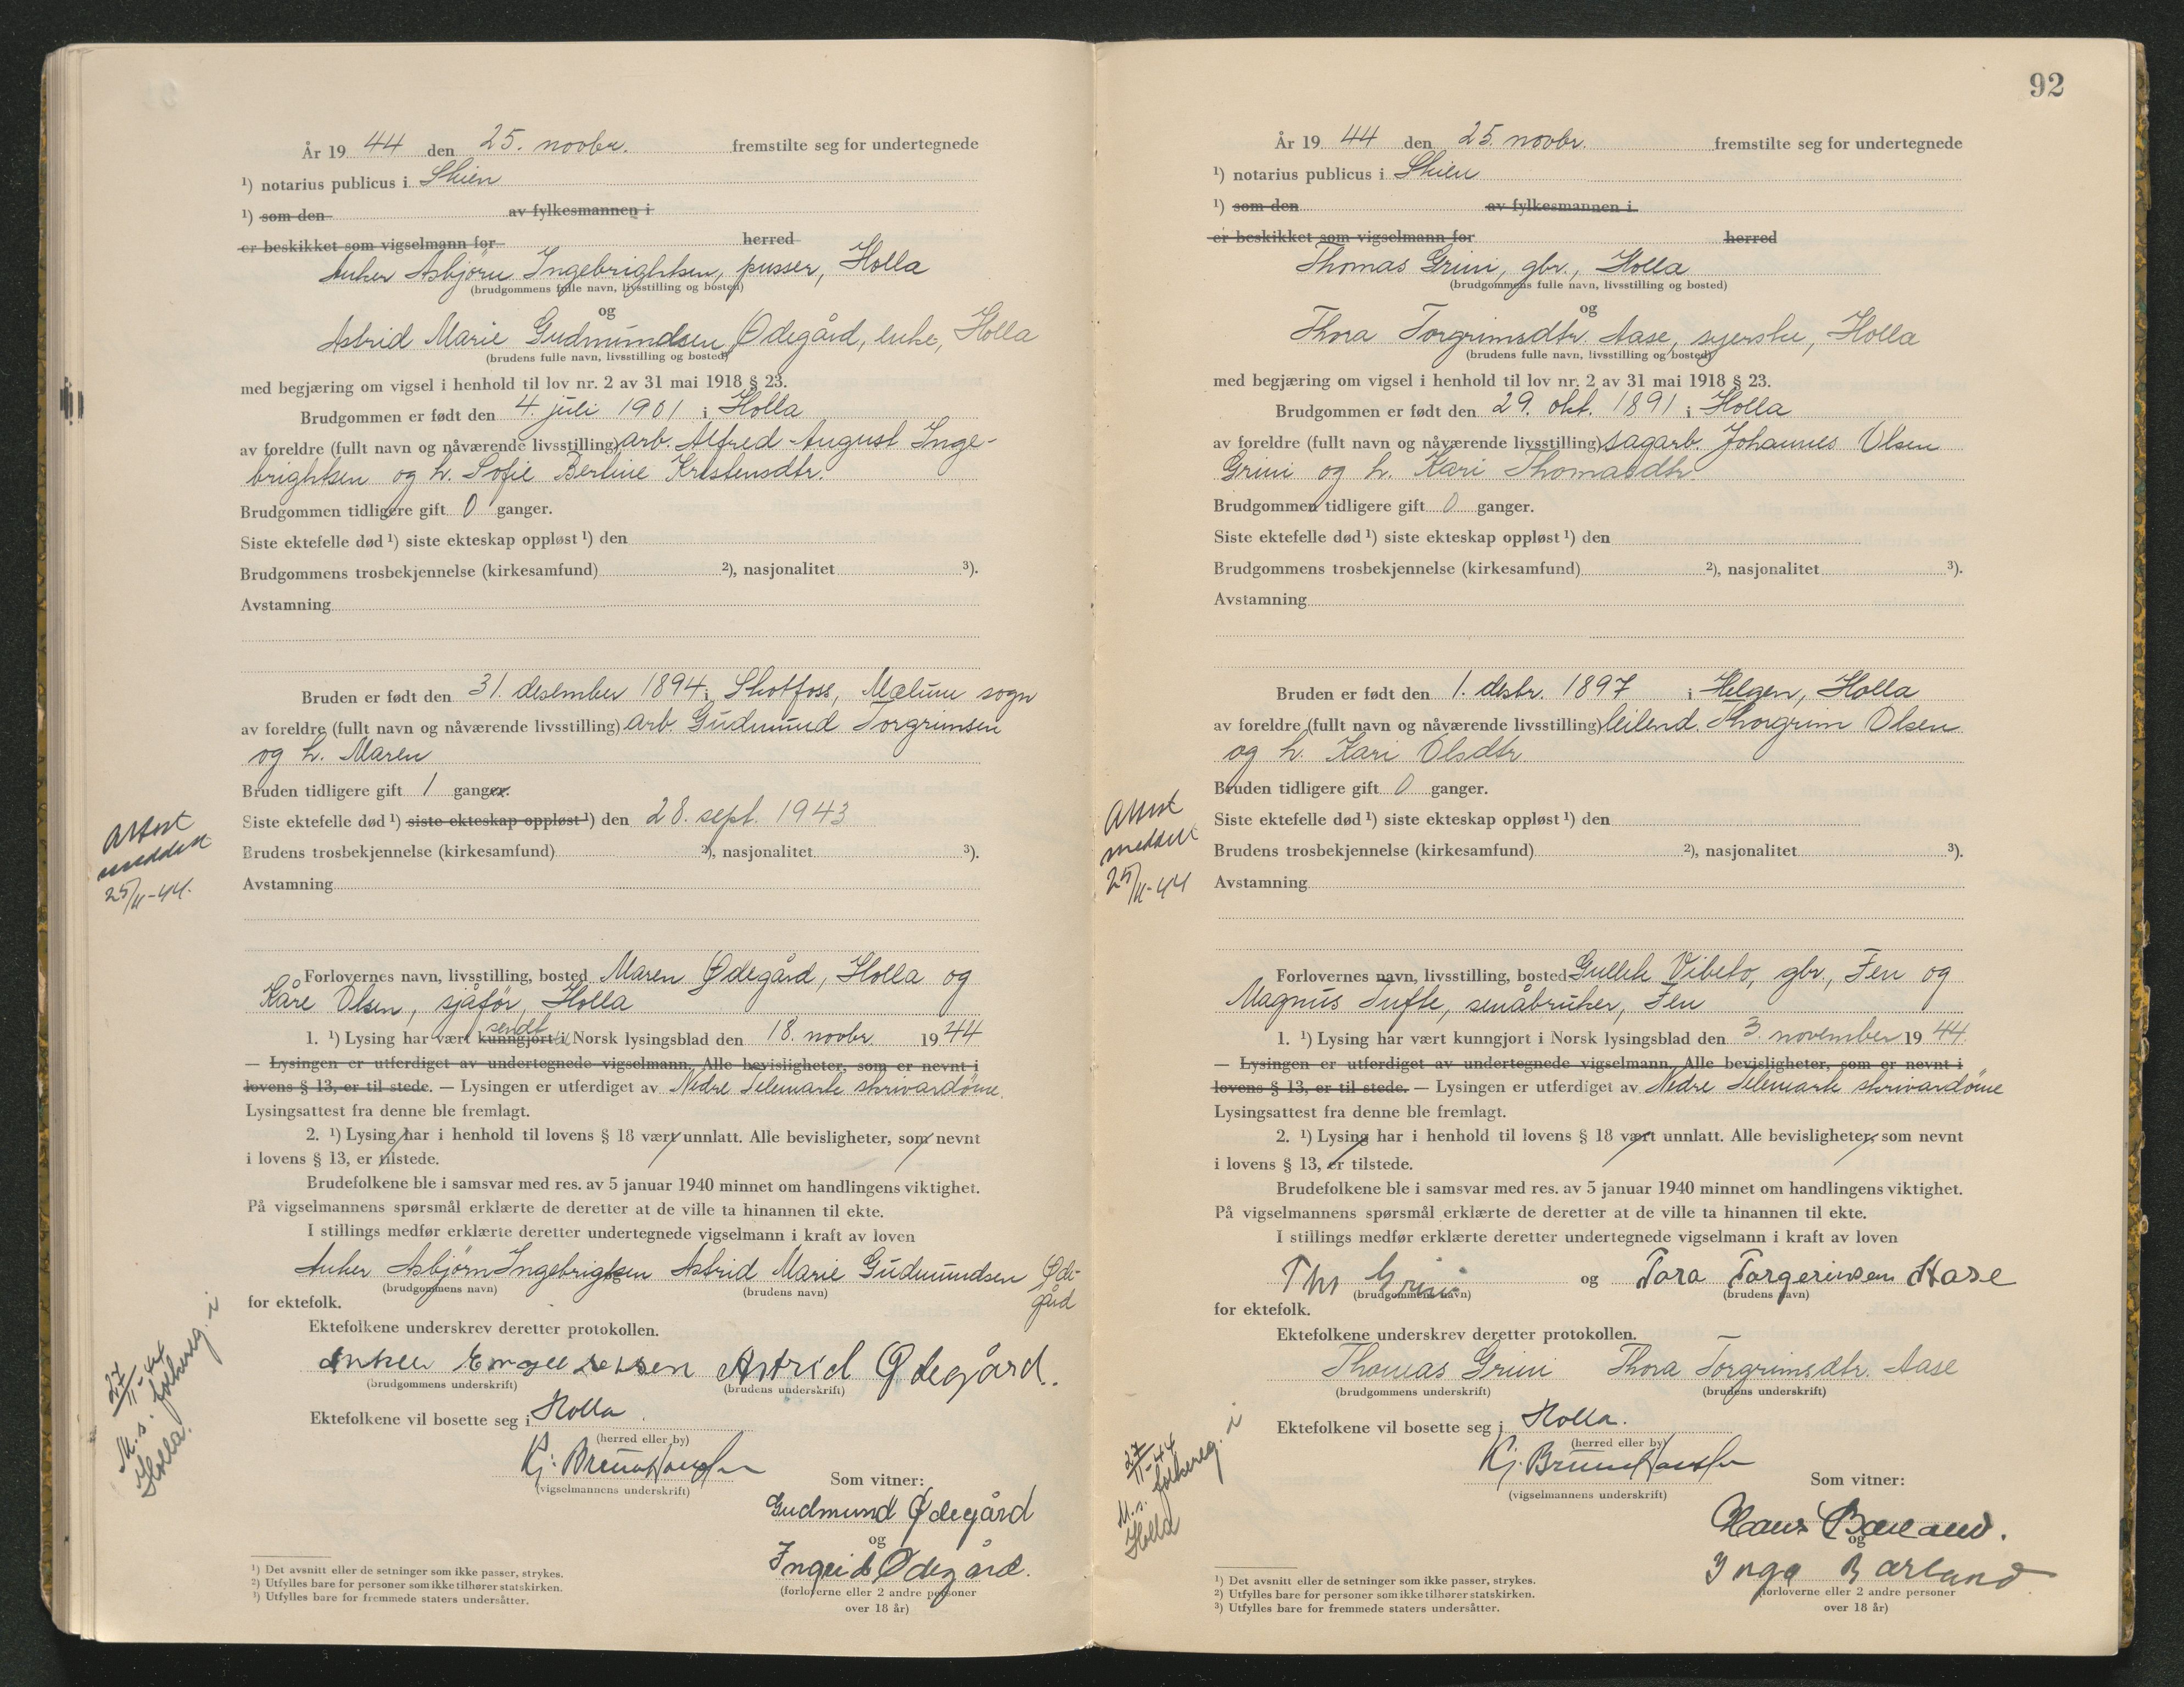 År 19 44 den 25. novbr. fremstilte seg for undertegnede
¹) notarius publicus i Skien
¹) som den av fylkesmannen i
er beskikket som vigselmann for herred
Anker Asbjörn Ingebrigtsen, pusser, Holla
(brudgommens fulle navn, livsstilling og bosted)
og
Astrid Marie Gudmundsen Ødegård, enke, Holla
(brudens fulle navn, livsstilling og bosted)
med begjæring om vigsel i henhold til lov nr. 2 av 31 mai 1918 § 23.
Brudgommen er født den 4. juli 1901 i Holla
av foreldre (fullt navn og nåværende livsstilling) arb. Alfred August Inge-
brightsen og h. Sofie Bertine Kristensdtr.
Brudgommen tidligere gift 0 ganger.
Siste ektefelle død ¹) siste ekteskap oppløst ¹) den
Brudgommens trosbekjennelse (kirkesamfund) ²), nasjonalitet ³).
Avstamning
Bruden er født den 31. desember 1894 i Skotfoss, Mælum sogn
av foreldre (fullt navn og nåværende livsstilling) arb. Gudmund Torgrimsen
og h. Maren
Bruden tidligere gift 1 ganger.
Siste ektefelle død ¹) siste ekteskap oppløst ¹) den 28. sept. 1943
Brudens trosbekjennelse (kirkesamfund) ²), nasjonalitet ³).
Avstamning
Attest
meddelt
25/11-44.
Forlovernes navn, livsstilling, bosted Maren Ødegård, Holla og
Kåre Olsen, sjåför, Holla
sendt
1. ¹) Lysing har vært kunngjort i Norsk lysingsblad den 18. novbr. 1944
— Lysingen er utferdiget av undertegnede vigselmann. Alle bevisligheter, som er nevnt i
lovens § 13, er til stede. — Lysingen er utferdiget av Nedre Telemark skrivardöme.
Lysingsattest fra denne ble fremlagt.
2. ¹) Lysing har i henhold til lovens § 18 vært unnlatt. Alle bevisligheter, som nevnt
i lovens § 13, er tilstede.
Brudefolkene ble i samsvar med res. av 5 januar 1940 minnet om handlingens viktighet.
På vigselmannens spørsmål erklærte de deretter at de ville ta hinannen til ekte.
I stillings medfør erklærte deretter undertegnede vigselmann i kraft av loven
Anker Asbjörn Ingebrigtsen Astrid Marie Gudmundsen Øde-
gård
(brudgommens navn) (brudens navn)
for ektefolk.
Ektefolkene underskrev deretter protokollen.
Anker Astrid Ødegård.
(brudgommens underskrift) (brudens underskrift)
Ektefolkene vil bosette seg i Holla.
(herred eller by)
Kj. Bruun Hanssen
(vigselmannens underskrift)
Som vitner:
Gudmund Ødegård
og
Ingrid Ødegård.
(forloverne eller 2 andre personer
over 18 år)
27/11-44
M.s. folkereg. i
Holla.
¹) Det avsnitt eller de setninger som ikke passer, strykes.
²) Utfylles bare for personer som ikke tilhører statskirken.
³) Utfylles bare for fremmede staters undersåtter.
92
År 19 44 den 25. novbr. fremstilte seg for undertegnede
¹) notarius publicus i Skien
¹) som den av fylkesmannen i
er beskikket som vigselmann for herred
Thomas Grini, gbr., Holla
(brudgommens fulle navn, livsstilling og bosted)
og
Thora Torgrimsdtr. Aase, syerske, Holla
(brudens fulle navn, livsstilling og bosted)
med begjæring om vigsel i henhold til lov nr. 2 av 31 mai 1918 § 23.
Brudgommen er født den 29. okt. 1891 i Holla
av foreldre (fullt navn og nåværende livsstilling) sagarb. Johannes Olsen
Grini og h. Kari Thomasdtr.
Brudgommen tidligere gift 0 ganger.
Siste ektefelle død ¹) siste ekteskap oppløst ¹) den
Brudgommens trosbekjennelse (kirkesamfund) ²), nasjonalitet ³).
Avstamning
Bruden er født den 1. desbr. 1897 i Helgen, Holla
av foreldre (fullt navn og nåværende livsstilling) leilend. Thorgrim Olsen
og h. Kari Olsdtr.
Bruden tidligere gift 0 ganger.
Siste ektefelle død ¹) siste ekteskap oppløst ¹) den
Brudens trosbekjennelse (kirkesamfund) ²), nasjonalitet ³).
Avstamning
Attest
meddelt
25/11-44
Forlovernes navn, livsstilling, bosted Gullek Vibeto, gbr., Fen og
Magnus Tufte, småbruker, Fen
1. ¹) Lysing har vært kunngjort i Norsk lysingsblad den 3. november 1944.
— Lysingen er utferdiget av undertegnede vigselmann. Alle bevisligheter, som er nevnt i
lovens § 13, er til stede. — Lysingen er utferdiget av Nedre Telemark skrivardöme
Lysingsattest fra denne ble fremlagt.
2. ¹) Lysing har i henhold til lovens § 18 vært unnlatt. Alle bevisligheter, som nevnt
i lovens § 13, er tilstede.
Brudefolkene ble i samsvar med res. av 5 januar 1940 minnet om handlingens viktighet.
På vigselmannens spørsmål erklærte de deretter at de ville ta hinannen til ekte.
I stillings medfør erklærte deretter undertegnede vigselmann i kraft av loven
Ths Grini og Tora Torgerinsen Aase
(brudgommens navn) (brudens navn)
for ektefolk.
Ektefolkene underskrev deretter protokollen.
Thomas Grini Thora Torgrimsdtr. Aase
(brudgommens underskrift) (brudens underskrift)
Ektefolkene vil bosette seg i Holla.
(herred eller by)
Kj. Bruun Hanssen
(vigselmannens underskrift)
Som vitner:
Hans Barland.
og
Inga Barland
(forloverne eller 2 andre personer
over 18 år)
27/11-44
M.s. folkereg. i
Holla
¹) Det avsnitt eller de setninger som ikke passer, strykes.
²) Utfylles bare for personer som ikke tilhører statskirken.
³) Utfylles bare for fremmede staters undersåtter.